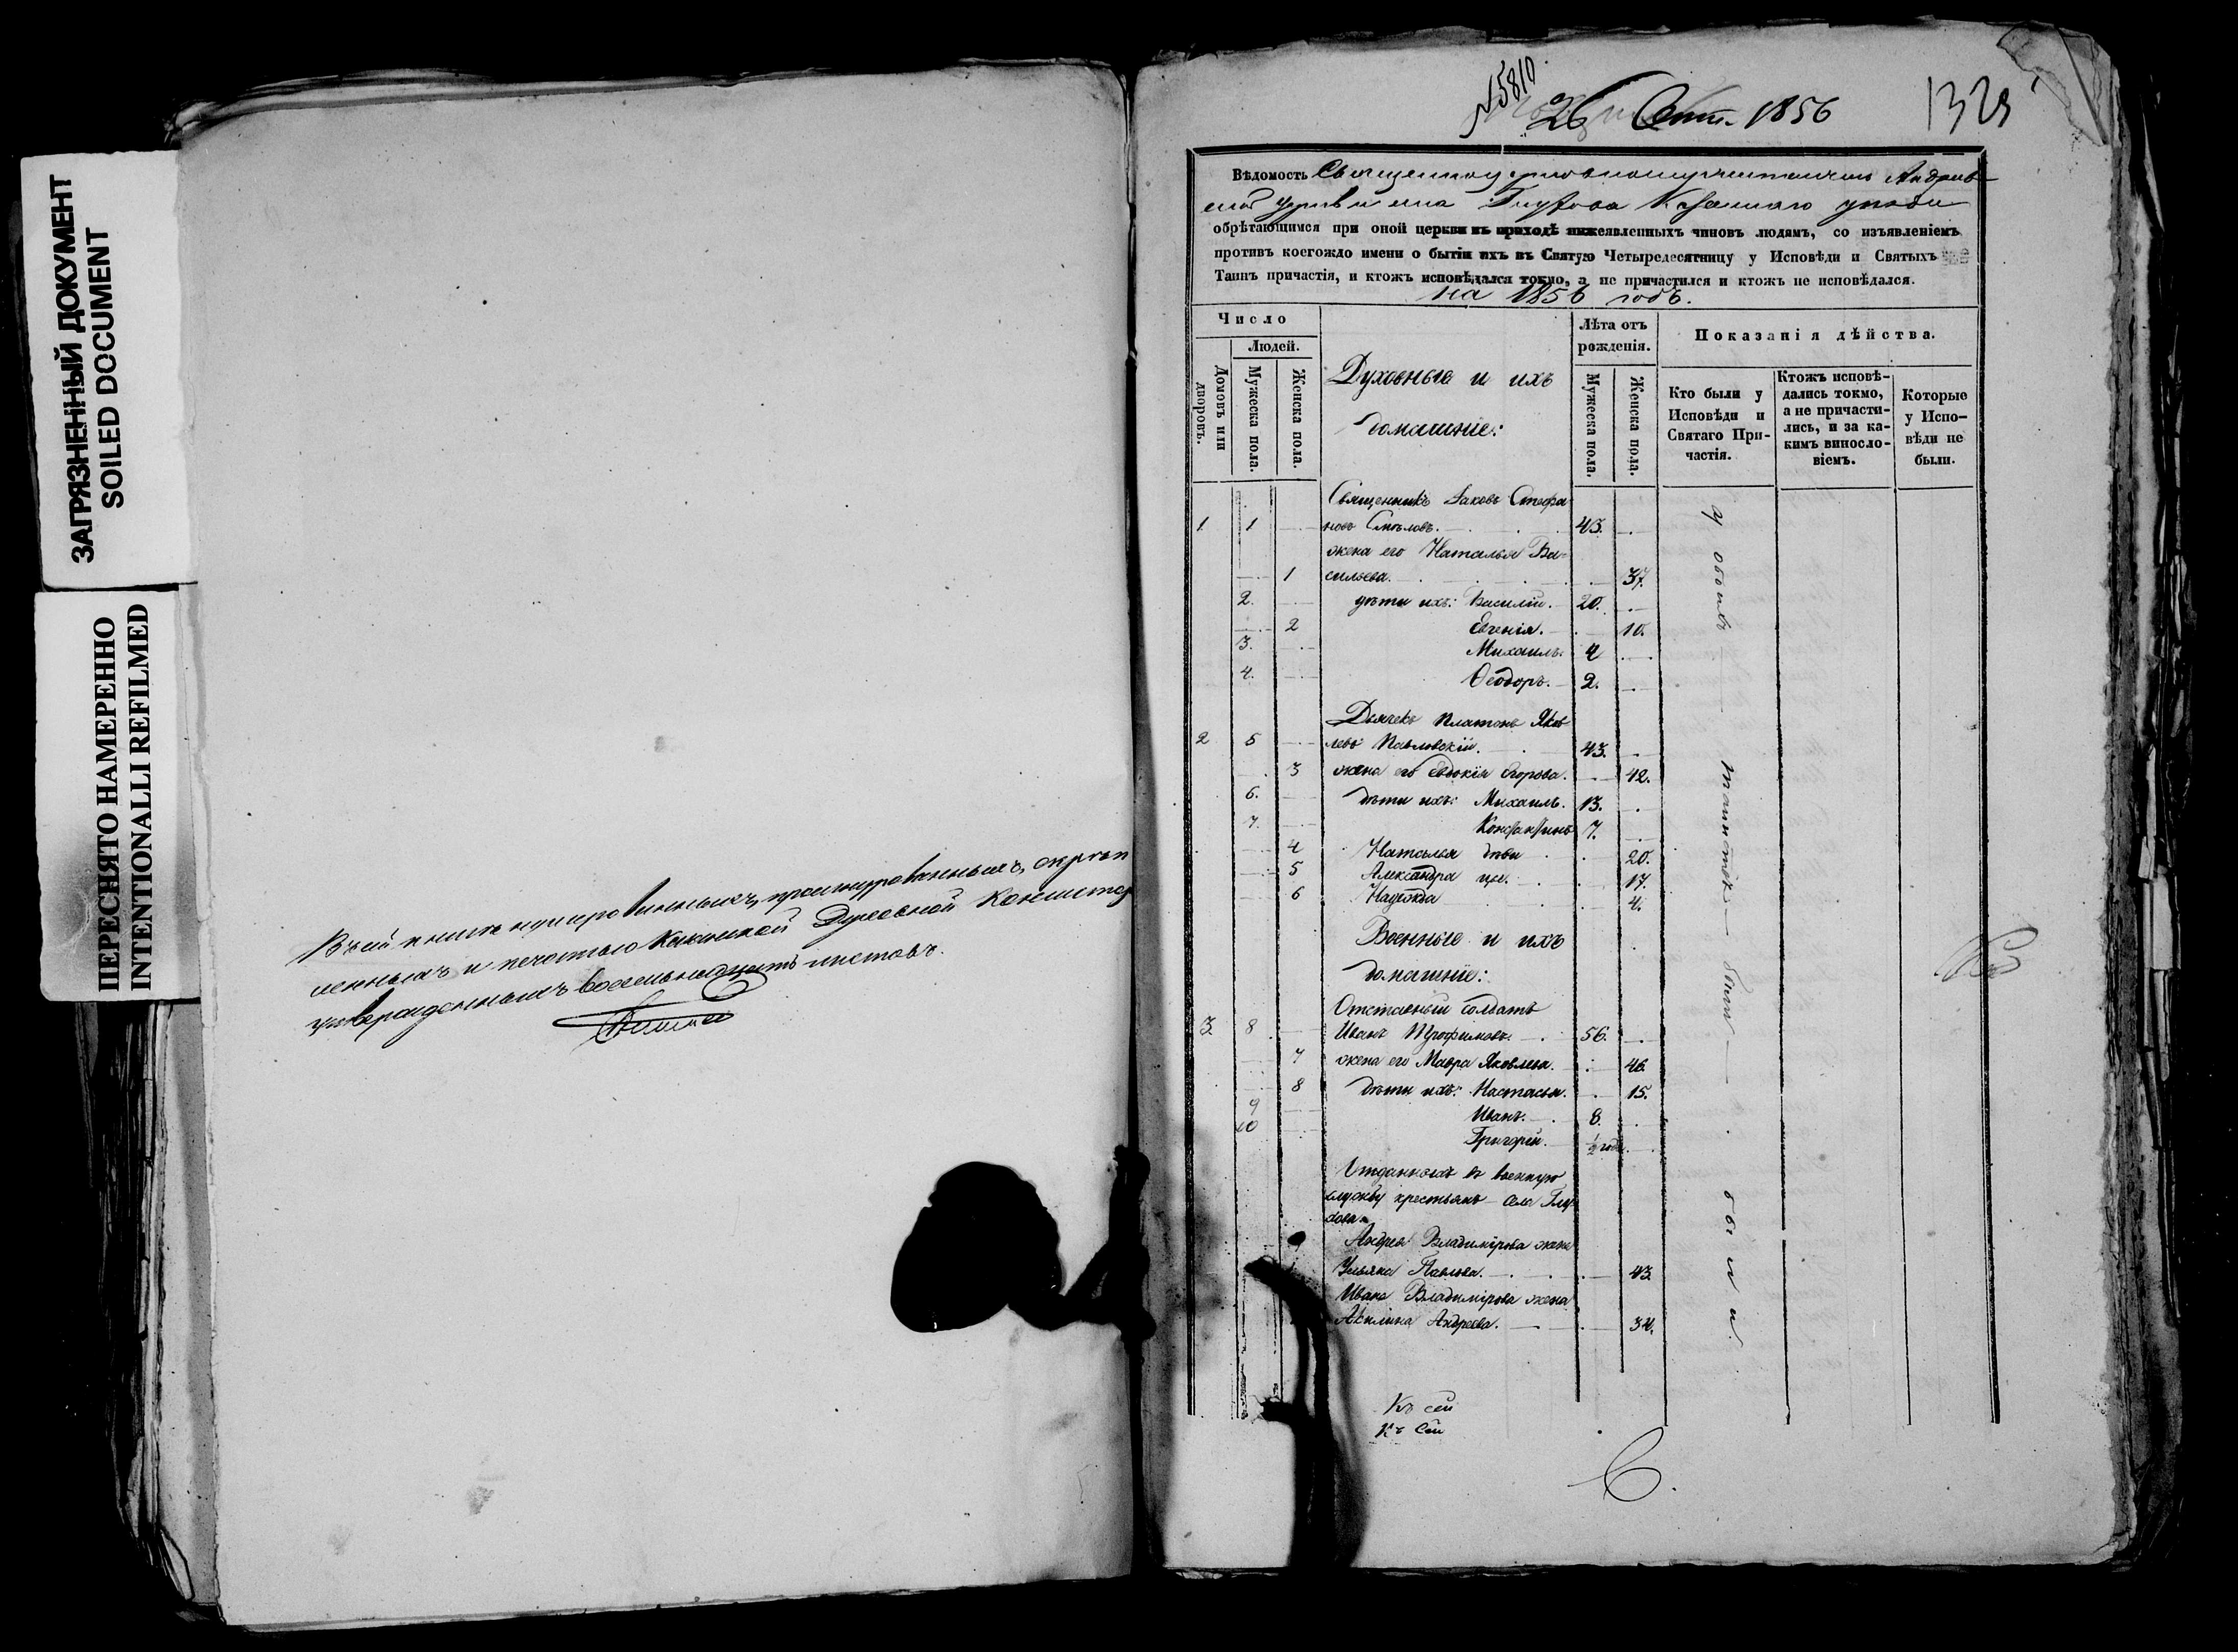 ЗАГРЯЗНЕННЫЙ ДОКУМЕНТ
SOILED DOCUMENT
ПЕРЕСНЯТО НАМЕРЕННО
INTENTIONALLI REFILMED
Въ сей книгѣ нумерованныхъ, прошнурованныхъ, скрѣп
ленныхъ и печатью Казанской Духовной Консистор
утвержденныхъ восемьнадцать листовъ.
№5810
26 1856
1329
Вѣдомость Андреев
ской церкви села Глухова уѣзда
обрѣтающимся при оной церкви въ приходѣ нижеявленныхъ чиновъ людямъ, со изъявленіемъ
противъ коегождо имени о бытіи ихъ въ Святую Четыредесятницу у Исповѣди и Святыхъ
Таинъ причастія, и ктожъ исповѣдался токмо, а не причастился и ктожъ не исповѣдался.
на 1856 годъ.
Число
Людей.
Домовъ или дворовъ.
Мужеска пола.
Женска пола.
Духовные и ихъ
домашніе:
Лѣта отъ рожденія.
Мужеска пола.
Женска пола.
Показанія дѣйства.
Кто были у Исповѣди и Святаго При-
частія.
Ктожъ исповѣ-
дались токмо,
а не причасти-
лись, и за ка-
кимъ винносло-
віемъ.
Которые
у Испо-
вѣди не
были.
Священникъ Іаковъ Стефа
1 1 новъ Смѣловъ. 43.
жена его Наталья Ва-
1 сильева. 37.
2. дѣти ихъ: Василій. 20.
2 Евгенія. 10.
3. Михаилъ. 4
4. Ѳеодоръ. 2.
Дьячекъ Платонъ Яков
2 5 левъ Павловскій. 43.
3 жена его Евдокія Егорова. 42.
6. дѣти ихъ: Михаилъ. 13.
7. Константинъ 7.
4 Наталья 20.
5 Александра 17.
6 Надежда 4.
Военные и ихъ
домашніе:
Отставный солдатъ
3 8 Иванъ Трофимовъ. 56.
7 жена его Мавра Яковлева. 46.
8 дѣти ихъ: Настасья. 15.
9 Иванъ. 8.
10 Григорій. ½ года.
Отданныхъ въ военную
службу крестьянъ села Глу
хова
Андрея Владимірова жена
Ульяна Павлова. 43.
Ивана Владимірова жена
Акилина Андреева. 34.
у обоихъ таинствъ были
были
Къ сей
Къ сей